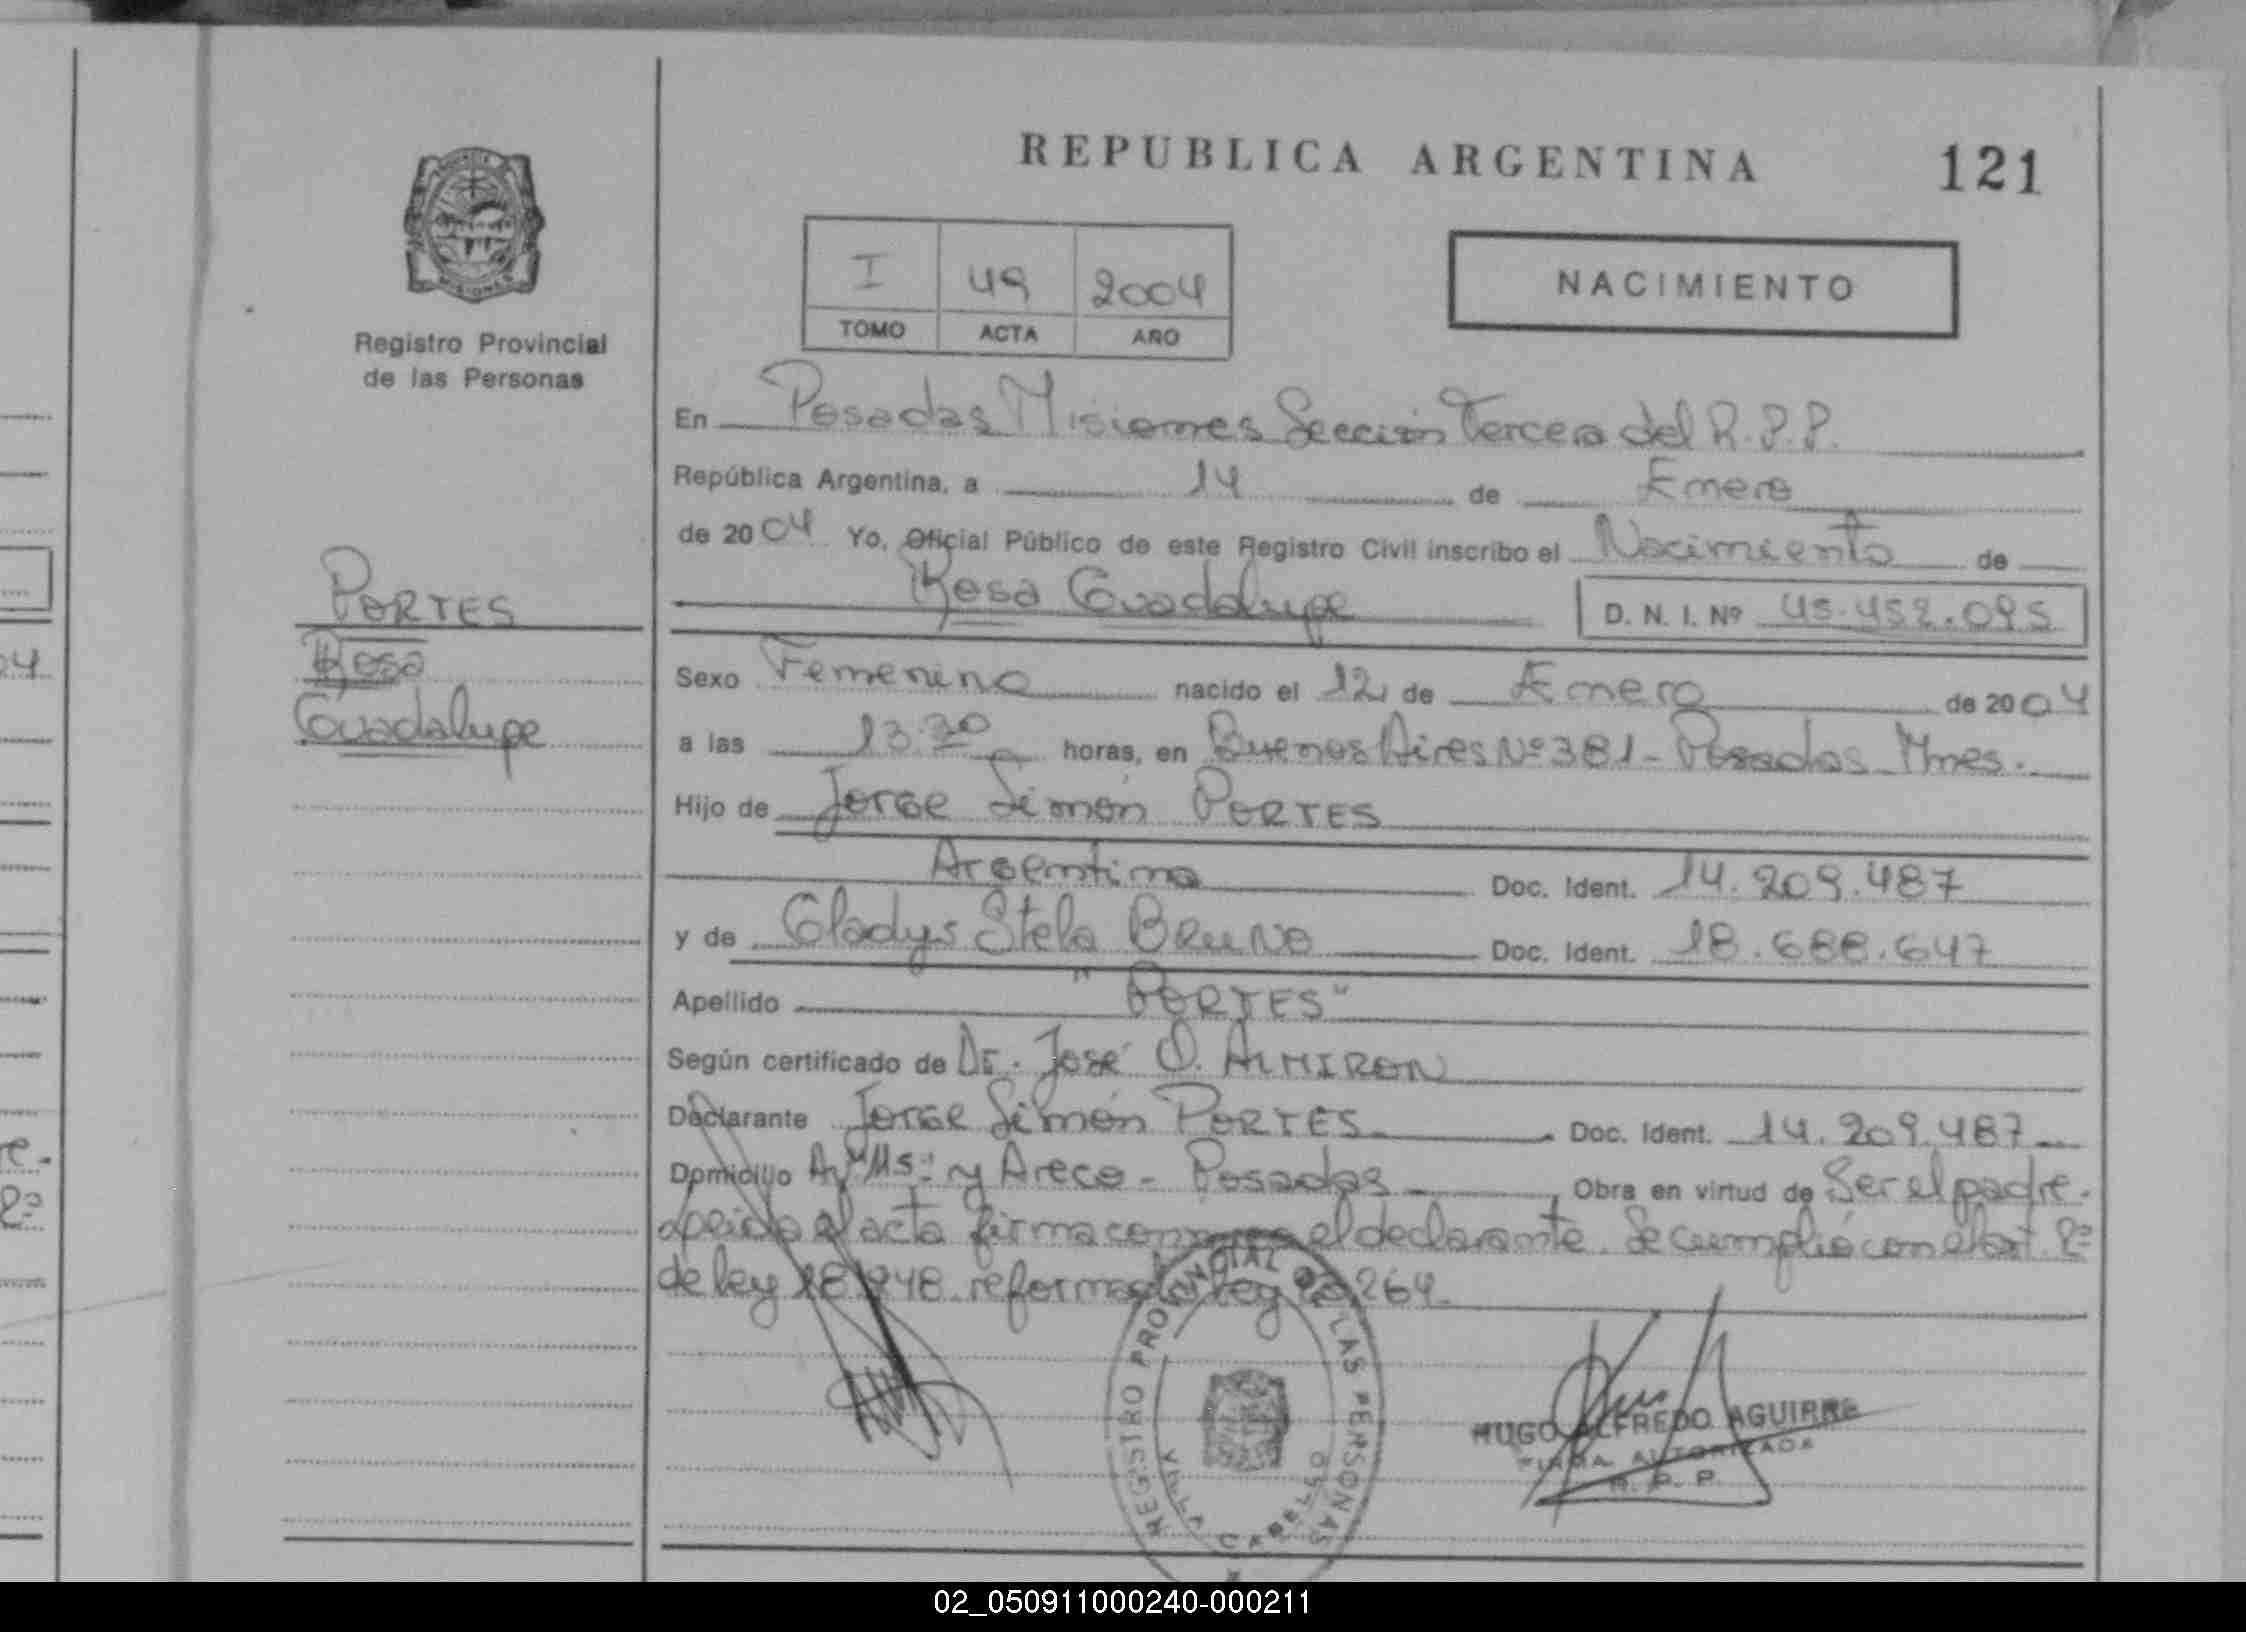 REPUBLICA ARGENTINA
121
NACIMIENTO
I 49 2004
TOMO ACTA AÑO
Registro Provincial
de las Personas
En Posadas Misiones Sección Tercera del R.P.P.
República Argentina, a 14 de Enero
de 2004 Yo, Oficial Público de este Registro Civil inscribo el Nacimiento de
Rosa Guadalupe D. N. I. Nº 45.452.095
PORTES
Rosa
Guadalupe
Sexo Femenino nacido el 12 de Enero de 2004
a las 13:30 horas, en Buenos Aires Nº 381 - Posadas Mnes.
Hijo de Jorge Simón PORTES
Argentino Doc. Ident. 14.209.487
y de Gladys Stela BRUNO Doc. Ident. 18.688.647
Apellido "PORTES"
Según certificado de Dr. José O. ALMIRON
Declarante Jorge Simón PORTES Doc. Ident. 14.209.487
Domicilio Av. y Areco - Posadas Obra en virtud de Ser el padre.
Leida el acta firma conmigo el declarante. Se cumplió con el art. 2º
de ley 18.248 reformada ley 23.264.
REGISTRO PROVINCIAL DE LAS PERSONAS
HUGO ALFREDO AGUIRRE
FIRMA AUTORIZADA
R. P. P.
02_050911000240-000211